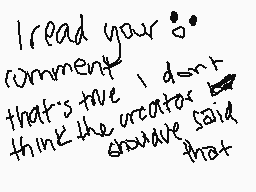 I read your
comment
that's true I don't
think the creator
shouave said
that